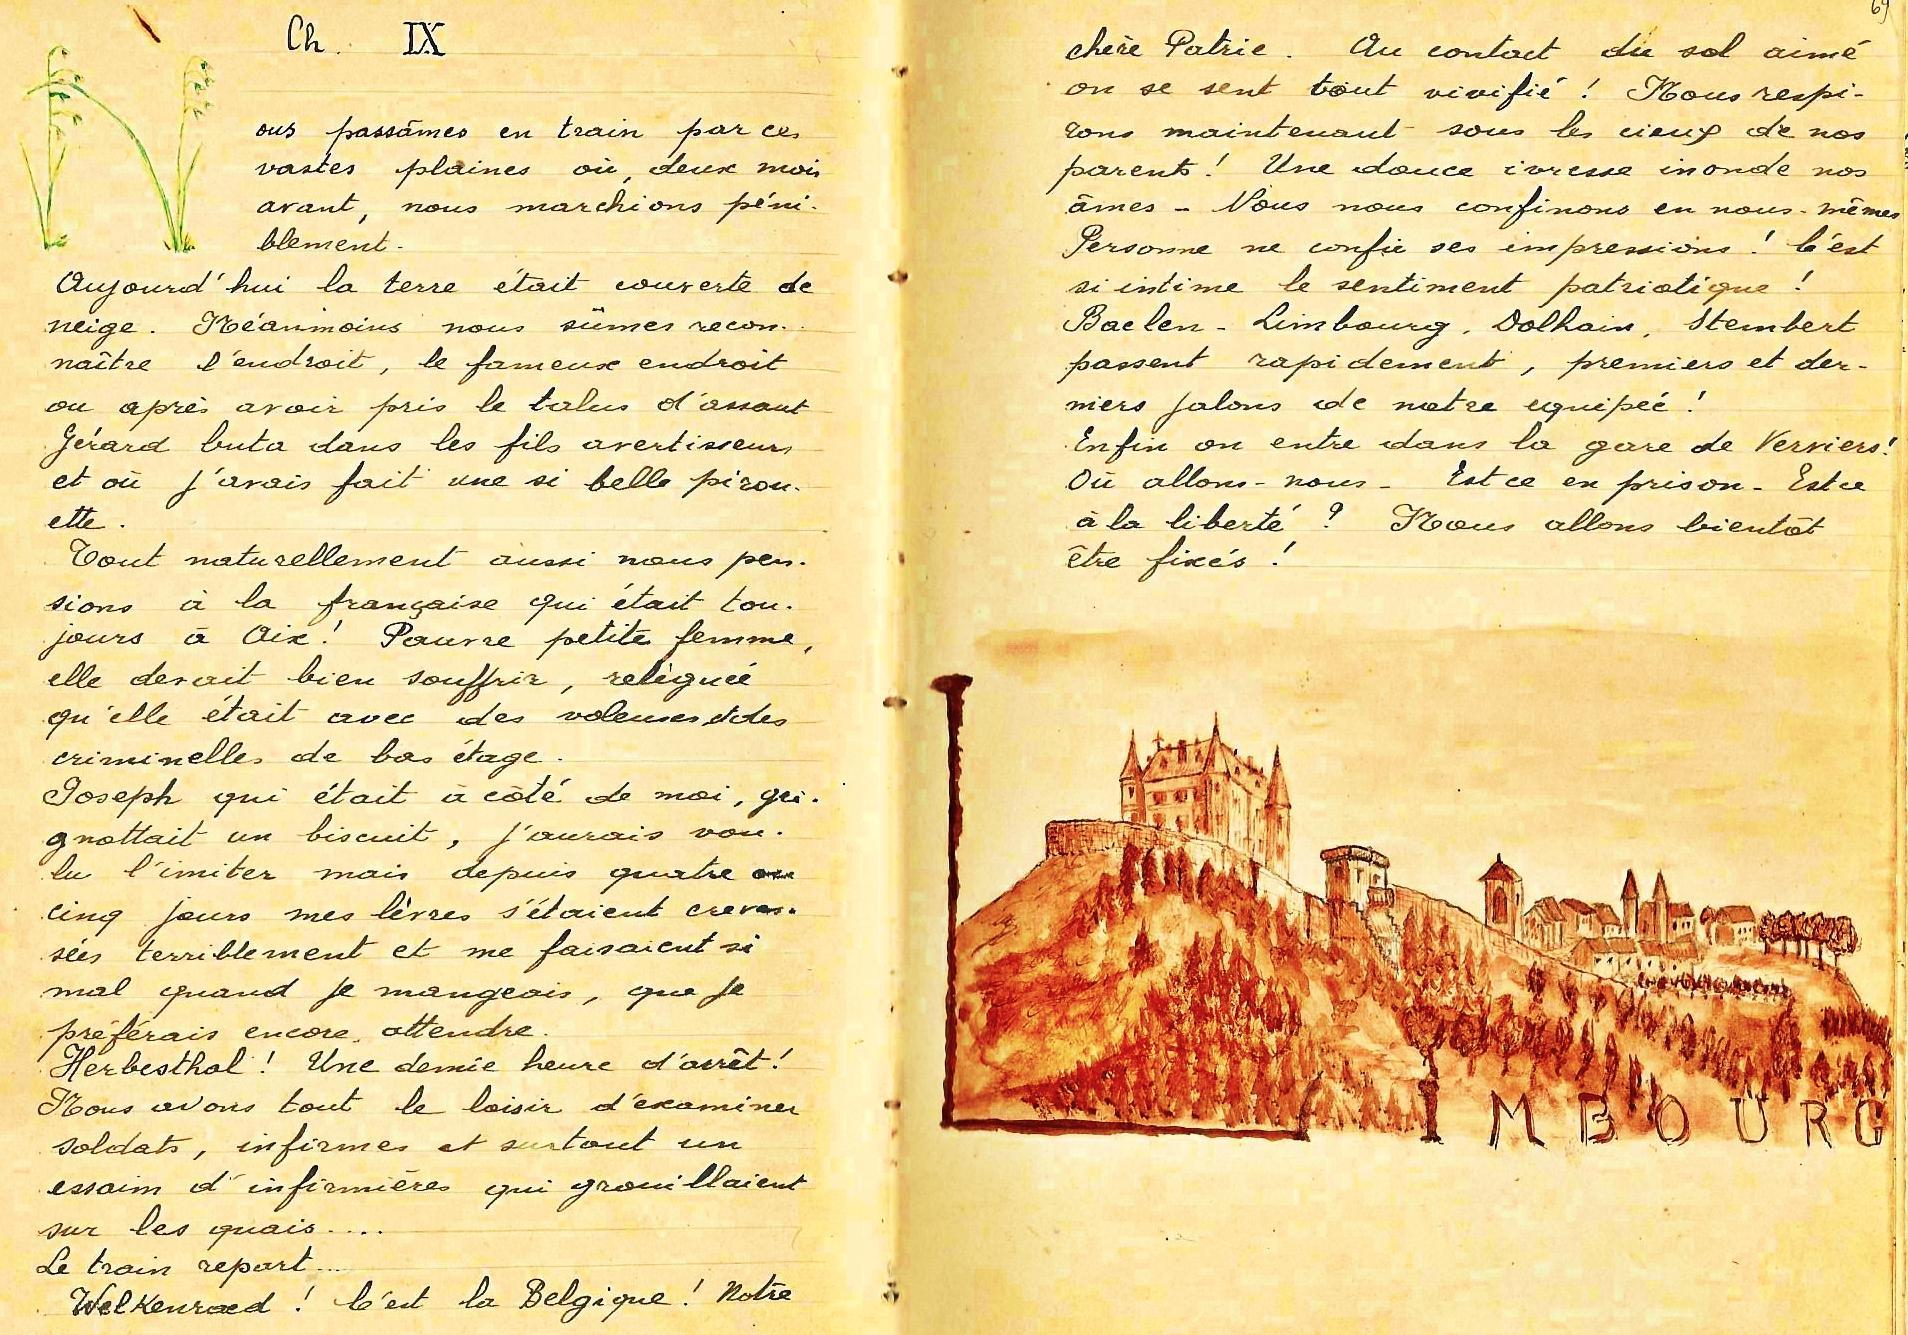 Ch. IX
Nous passâmes en train par ces
vastes plaines où, deux mois
avant, nous marchions péni-
blement.
Aujourd'hui la terre était couverte de
neige. Néanmoins nous sûmes recon-
naître l'endroit, le fameux endroit
ou après avoir pris le talus d'assaut
Gérard buta dans les fils avertisseurs
et où j'avais fait une si belle pirou-
ette.
Tout naturellement aussi nous pen-
sions à la française qui était tou-
jours à Aix! Pauvre petite femme,
elle devait bien souffrir, reléguée
qu'elle était avec des voleuses et des
criminelles de bas étage.
Joseph qui était à côté de moi, gri-
gnottait un biscuit, j'aurais vou-
lu l'imiter mais depuis quatre ou
cinq jours mes lèvres s'étaient crevas-
sées terriblement et me faisaient si
mal quand je mangeais, que je
préférais encore attendre.
Herbesthal! Une demie heure d'arrêt!
Nous avons tout le loisir d'examiner
soldats, infirmes et surtout un
essaim d'infirmières qui grouillaient
sur les quais....
Le train repart...
Welkenraed! C'est la Belgique! Notre
69
chère Patrie. Au contact du sol aimé
on se sent tout vivifié! Nous respi-
rons maintenant sous les cieux de nos
parents! Une douce ivresse inonde nos
âmes - Nous nous confinons en nous-mêmes
Personne ne confie ses impressions! C'est
si intime le sentiment patriotique!
Baelen - Limbourg, Dolhain, Stembert
passent rapidement, premiers et der-
niers jalons de notre equipée!
Enfin on entre dans la gare de Verviers!
Où allons-nous - Est ce en prison - Est ce
à la liberté? Nous allons bientôt
être fixés!
LIMBOURG